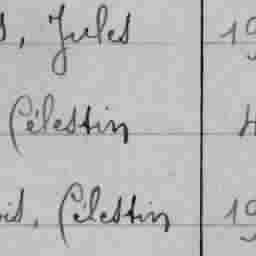 s, Jules 19
Célestin 4
ois, Célestin 19